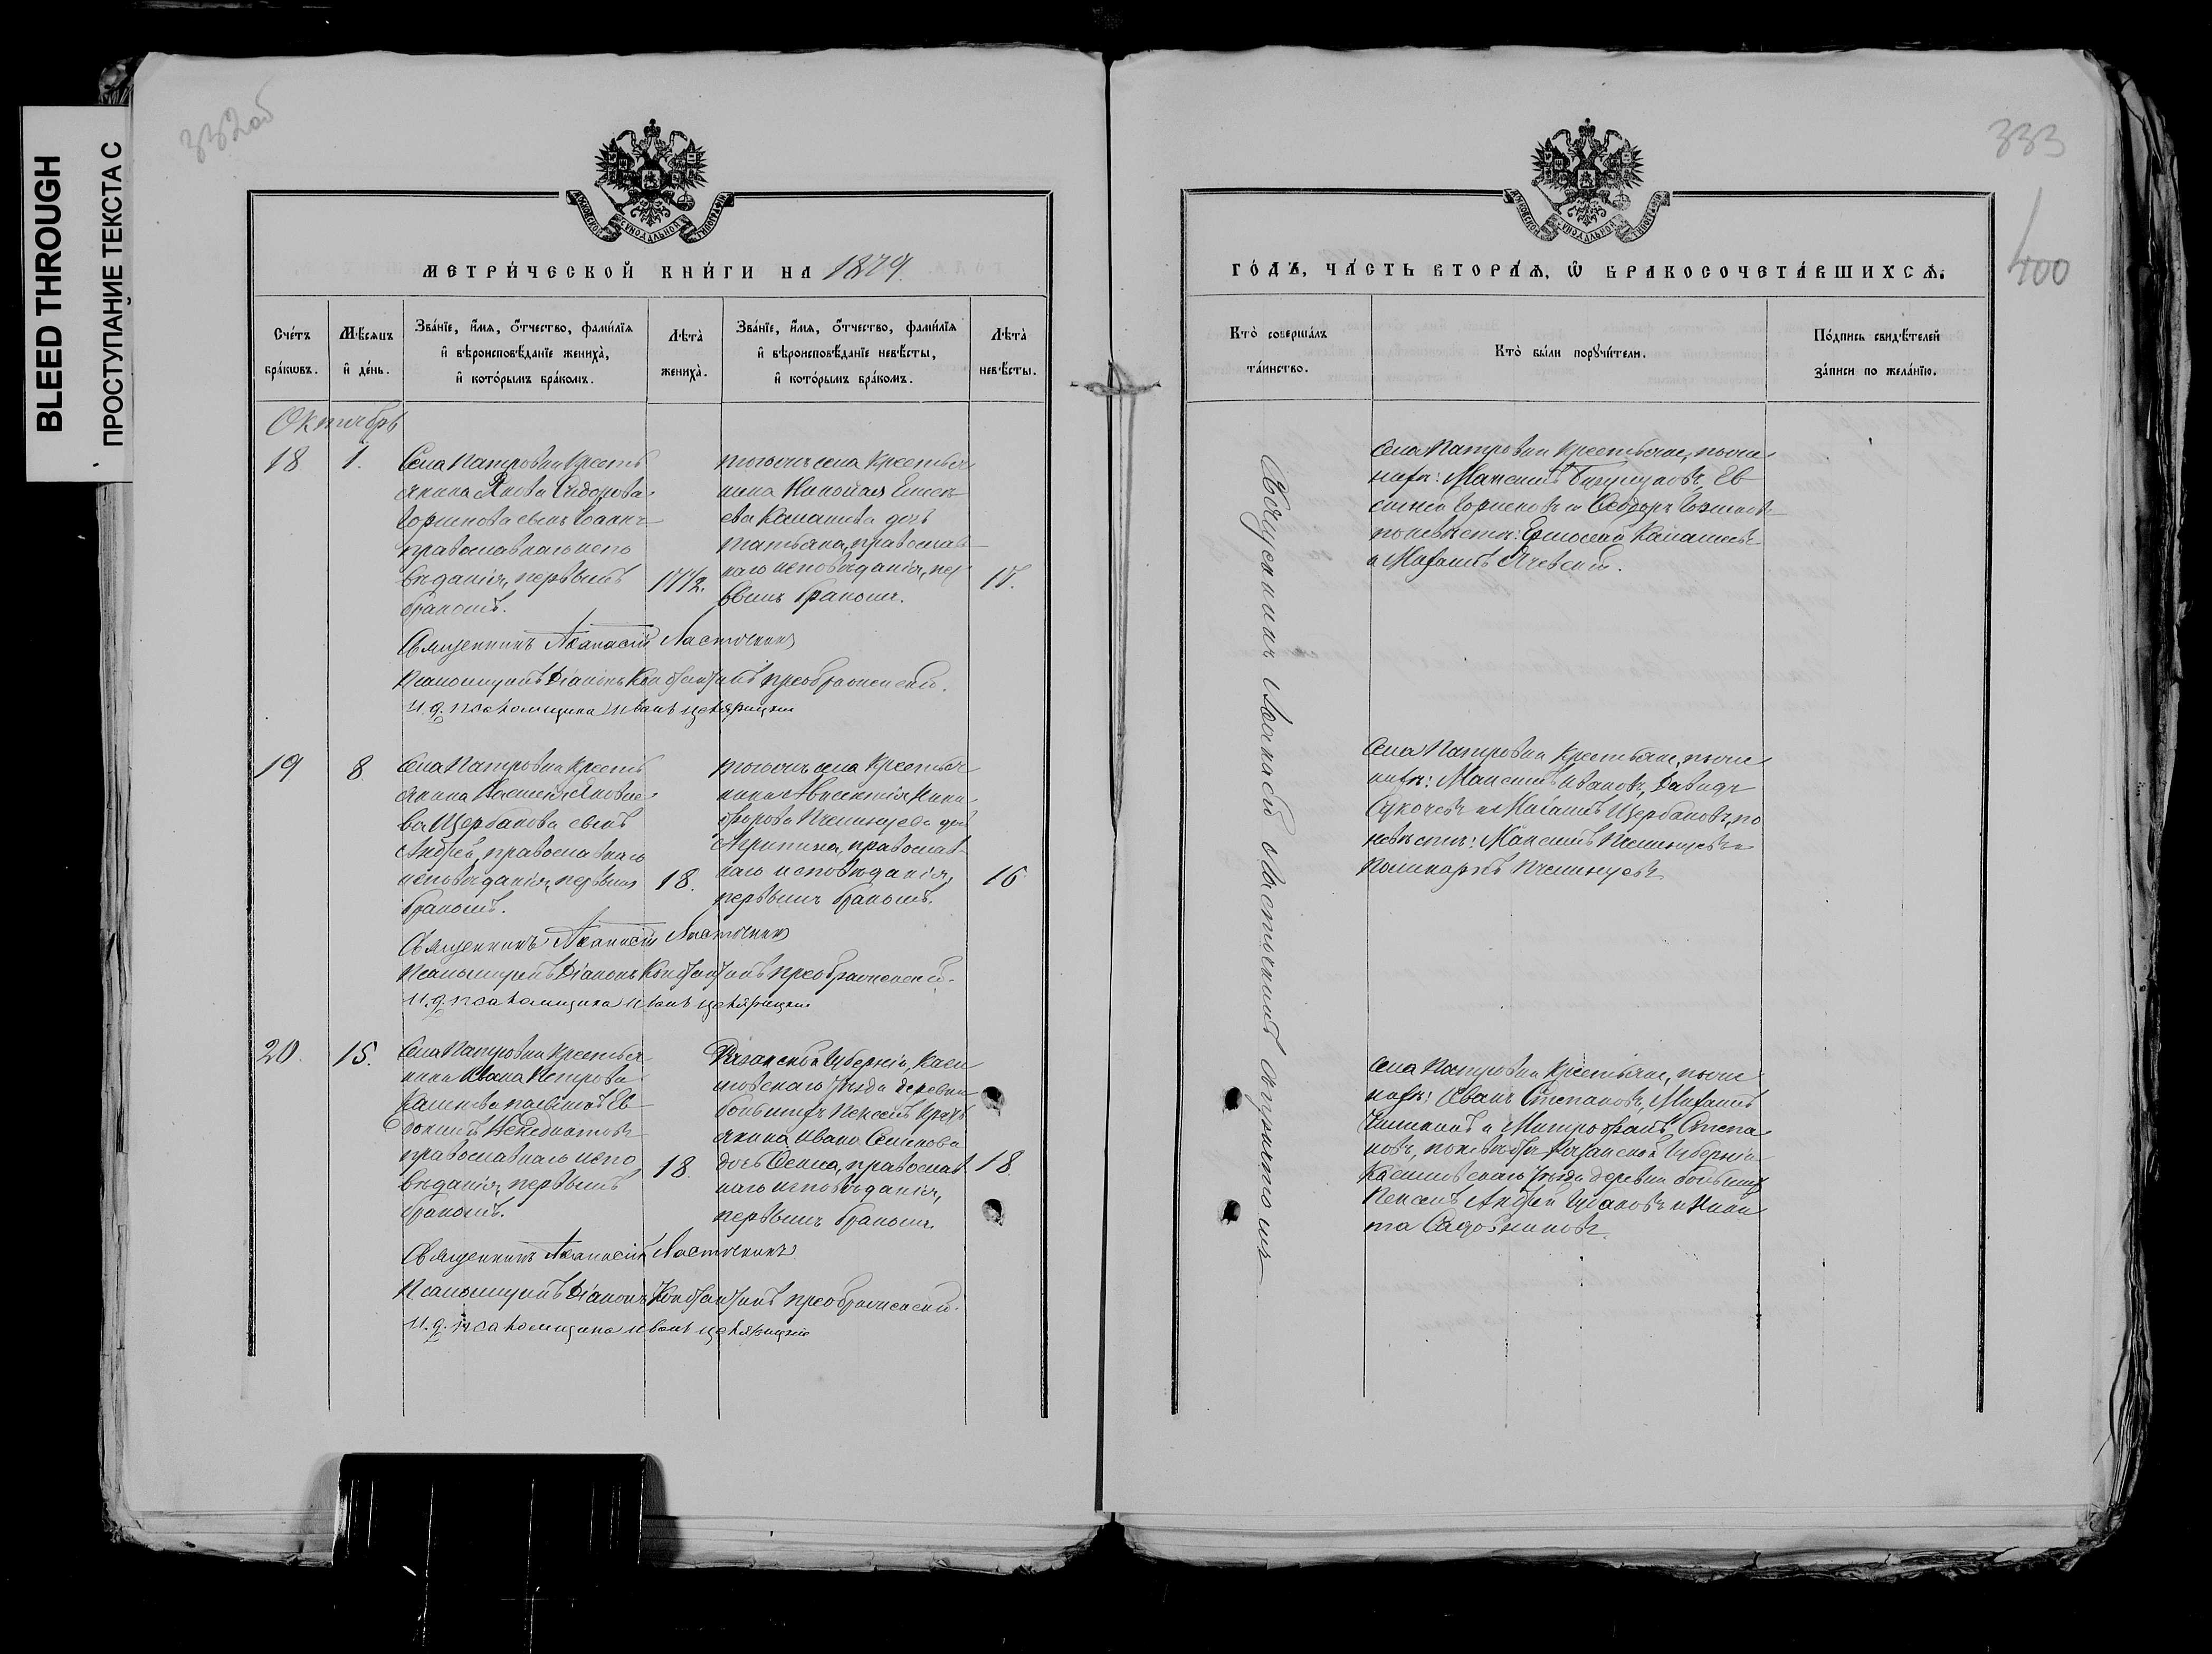 BLEED THROUGH
ПРОСТУПАНИЕ ТЕКСТА С
332об
МЕТРИ́ЧЕСКОЙ КНИ́ГИ НА 1879.
Сче́тъ бра́кѡвъ.
Мѣ́сяцъ и҆ де́нь.
Зва́нїе, и҆́мѧ, ѻ҆́тчество, фами́лїѧ и҆ вѣроисповѣ́данїе жениха̀, и҆ кото́рымъ бра́комъ.
Лѣ́та̀ жениха̀.
Зва́нїе, и҆́мѧ, ѻ҆́тчество, фами́лїѧ и҆ вѣроисповѣ́данїе невѣ́сты, и҆ кото́рымъ бра́комъ.
Лѣ́та̀ невѣ́сты.
Октябрь
18
1.
Села Патровки кресть
янина Якова Сидорова
сынъ Іоаннъ
православнаго испо
вѣданія, первымъ
бракомъ.
17 1/2.
тогоже села крестья
нина Николая
дочь
Татьяна, православ
наго исповѣданія, пер
вымъ бракомъ.
17.
Священникъ Аѳанасій Ласточкинъ
Псаломщикъ Діаконъ Константинъ Преображенскій.
И. д. псаломщика Иванъ
19
8
Села Патровки кресть
янина Василія Яковле
ва Щербакова сынъ
Андрей, православнаго
исповѣданія, первымъ
бракомъ.
18.
тогоже села крестья
нина Авксентія Ники
форова Пчелинцева дочь
Агрипина, православ
наго исповѣданія,
первымъ бракомъ.
16
Священникъ Аѳанасій Ласточкинъ
Псаломщикъ Діаконъ Константинъ Преображенскій.
И. д. псаломщика Иванъ
20.
15.
Села Патровки крестья
нина Ивана Петрова
Ев
докимъ
православнаго испо
вѣданія, первымъ
бракомъ.
18.
Рязанской Губерніи, Каси
мовскаго уѣзда деревни
большихъ Пексел крест
янина Ивана Семенова
дочь Ѳекла, православ
наго исповѣданія,
первымъ бракомъ.
18.
Священникъ Аѳанасій Ласточкинъ
Псаломщикъ Діаконъ Константинъ Преображенскій.
И. д. псаломщика Иванъ
333
400
ГО́ДЪ, ЧА́СТЬ ВТОРА́Ѧ, Ѡ҆ БРАКОСОЧЕТА́ВШИХСѦ.
Кто̀ соверша́лъ та́инство.
Кто̀ бы́ли порꙋчи́тели.
По́дпись свидѣ́телей за́писи по жела́нїю.
Священникъ Аѳанасій Ласточкинъ съ причтомъ
Села Патровки крестьяне, по же
нихѣ: Максимъ Ев
и Ѳеодоръ
по невѣстѣ: Ермолай
и Михаилъ
Села Патровки крестьяне, по же
нихѣ: Максимъ Ивановъ, Давидъ
и Михаилъ Щербаковъ, по
невѣстѣ: Максимъ Пчелинцевъ и
Поликарпъ Пчелинцевъ
Села Патровки крестьяне, по же
нихѣ: Иванъ Степановъ, Михаилъ
и Митрофанъ Степа
новъ, по невѣстѣ Рязанской Губерніи
Касимовскаго уѣзда деревни большихъ
Пексел Андрей и Ники
та Садовниковъ.